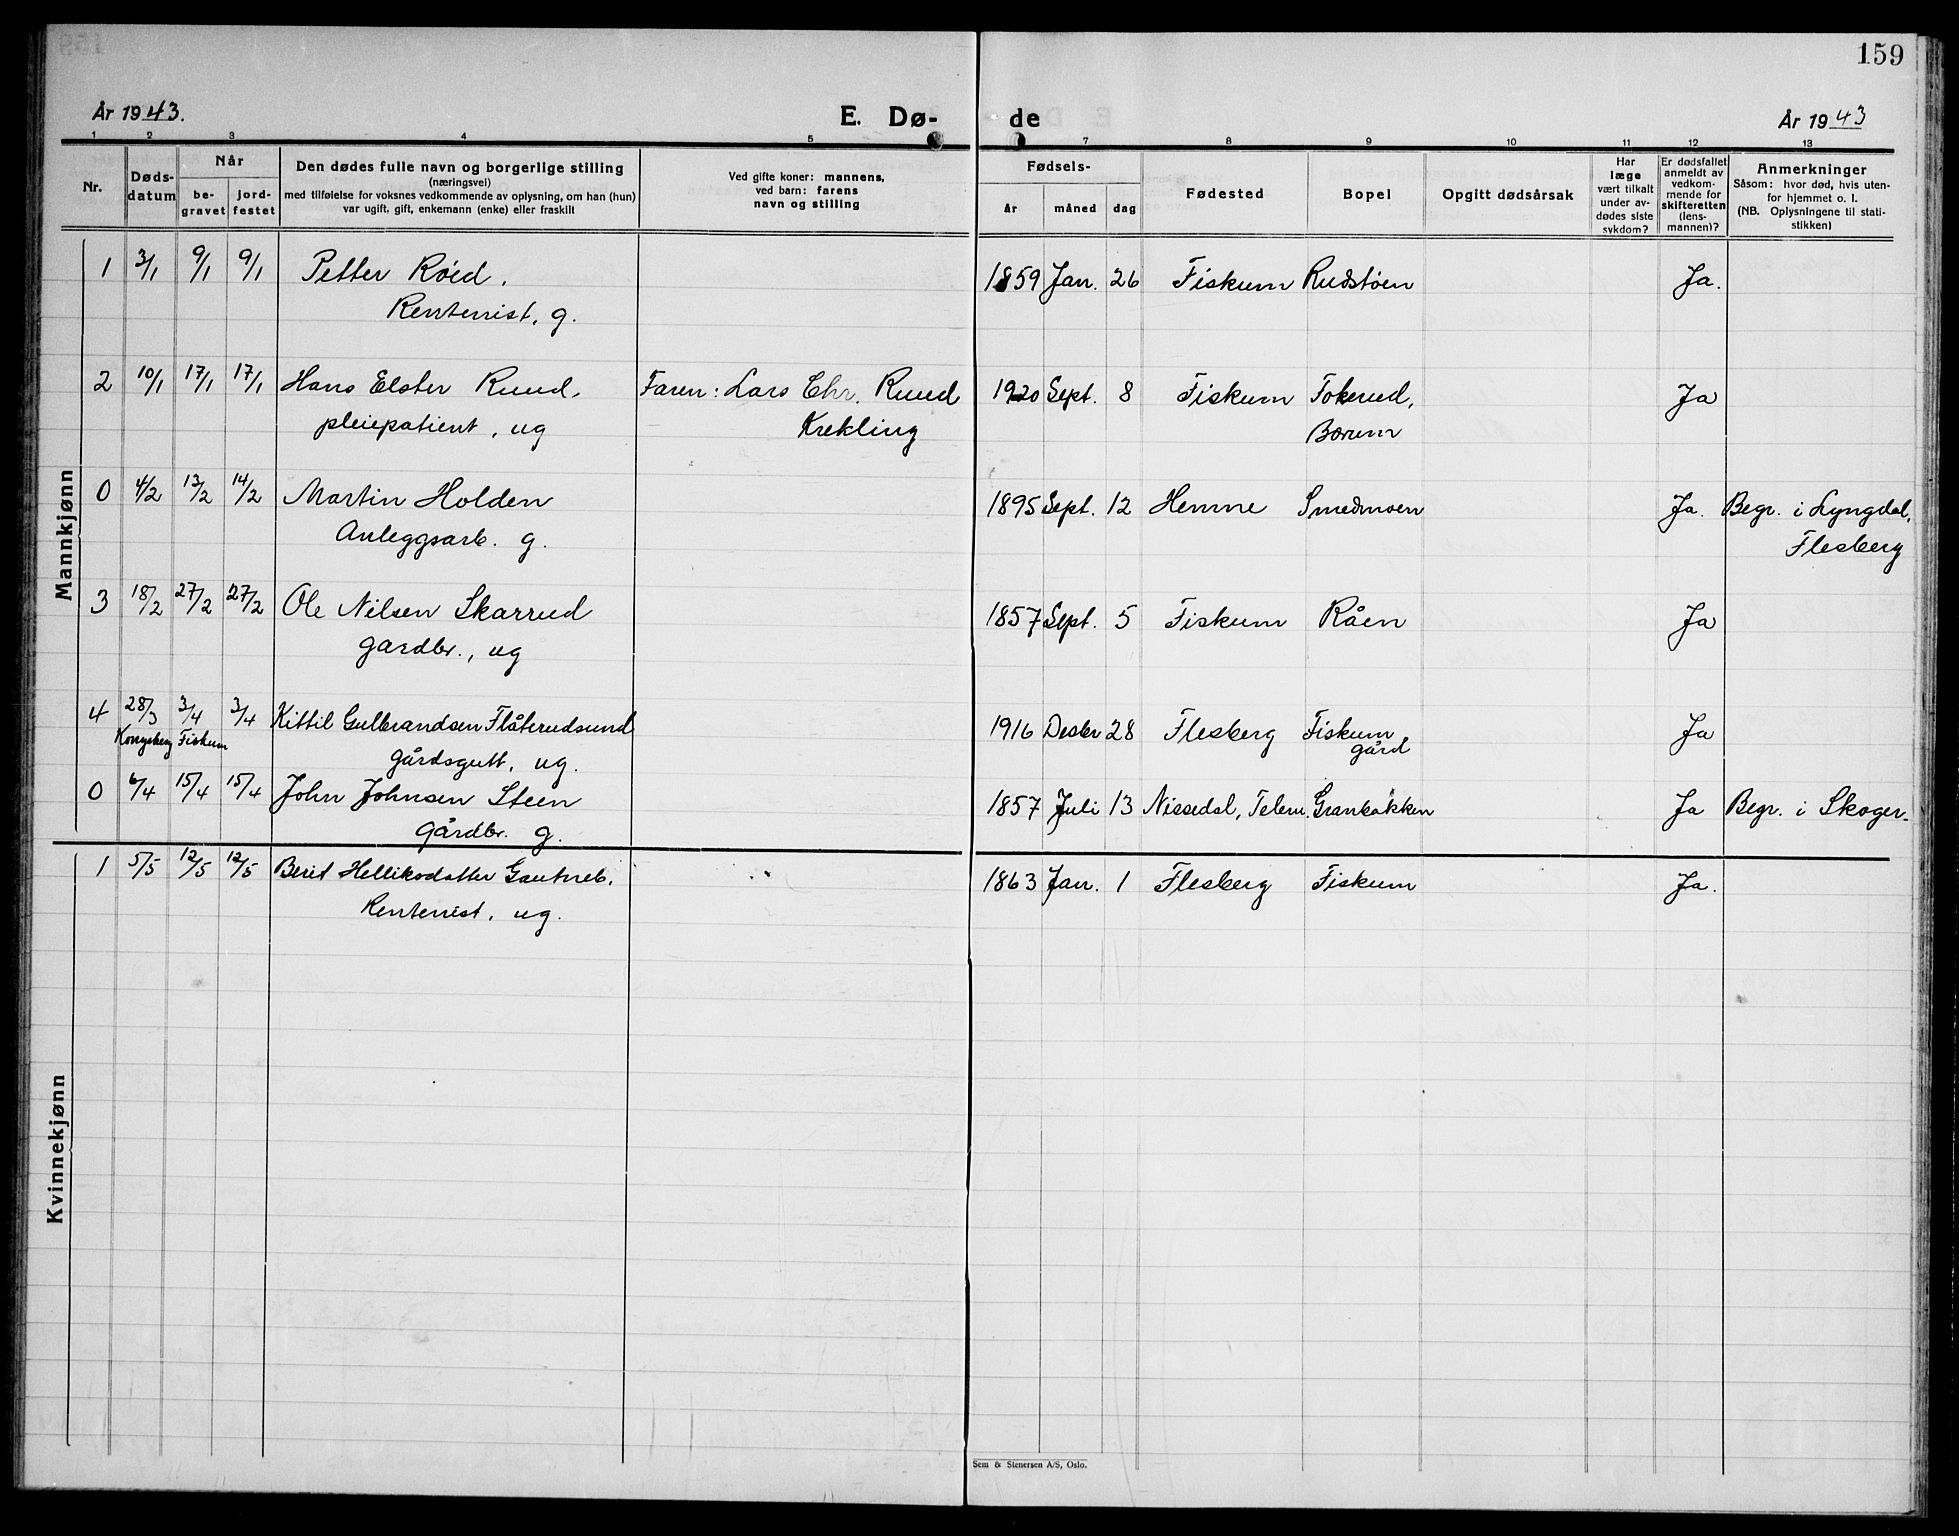 159
År 1943.
E. Dø-
de
År 1943
1 2 3 4 5 7 8 9 10 11 12 13
Nr.
Døds-
datum
Når
be-
gravet
jord-
festet
Den dødes fulle navn og borgerlige stilling
(næringsvei)
med tilføielse for voksnes vedkommende av oplysning, om han (hun)
var ugift, gift, enkemann (enke) eller fraskilt
Ved gifte koner: mannens,
ved barn: farens
navn og stilling
Fødsels-
år
måned
dag
Fødested
Bopel
Opgitt dødsårsak
Har
læge
vært tilkalt
under av-
dødes siste
sykdom?
Er dødsfallet
anmeldt av
vedkom-
mende for
skifteretten
(lens-
mannen)?
Anmerkninger
Såsom: hvor død, hvis uten-
for hjemmet o. l.
(NB. Oplysningene til stati-
stikken)
Mannkjønn
1 3/1 9/1 9/1 Petter Røed, 1859 Jan. 26 Fiskum Rudstøen Ja.
Rentenist, g.
2 10/1 17/1 17/1 Hans Elster Ruud, Faren: Lars Chr. Ruud 1920 Sept. 8 Fiskum Tokerud, Ja
pleiepatient, ug Krekling Bærum
0 4/2 13/2 14/2 Martin Holden 1895 Sept. 12 Hemne Smedmoen Ja. Begr. i Lyngdal,
Anleggsarb. g. Flesberg
3 18/2 27/2 27/2 Ole Nilsen Skarrud 1857 Sept. 5 Fiskum Råen Ja
gardbr., ug
4 28/3 3/4 3/4 Kittil Gulbrandsen Flåterudsund 1916 Desbr 28 Flesberg Fiskum Ja
Kongsberg Fiskum gårdsgutt, ug. gård
0 6/4 15/4 15/4 John Johnsen Steen 1857 Juli 13 Nissedal, Telem. Granbakken Ja Begr. i Skoger.
Gårdbr. g.
Kvinnekjønn
1 5/5 12/5 12/5 Berit Helliksdatter Gautneb, 1863 Jan. 1 Flesberg Fiskum Ja.
Rentenist, ug.
Sem & Stenersen A/S, Oslo.